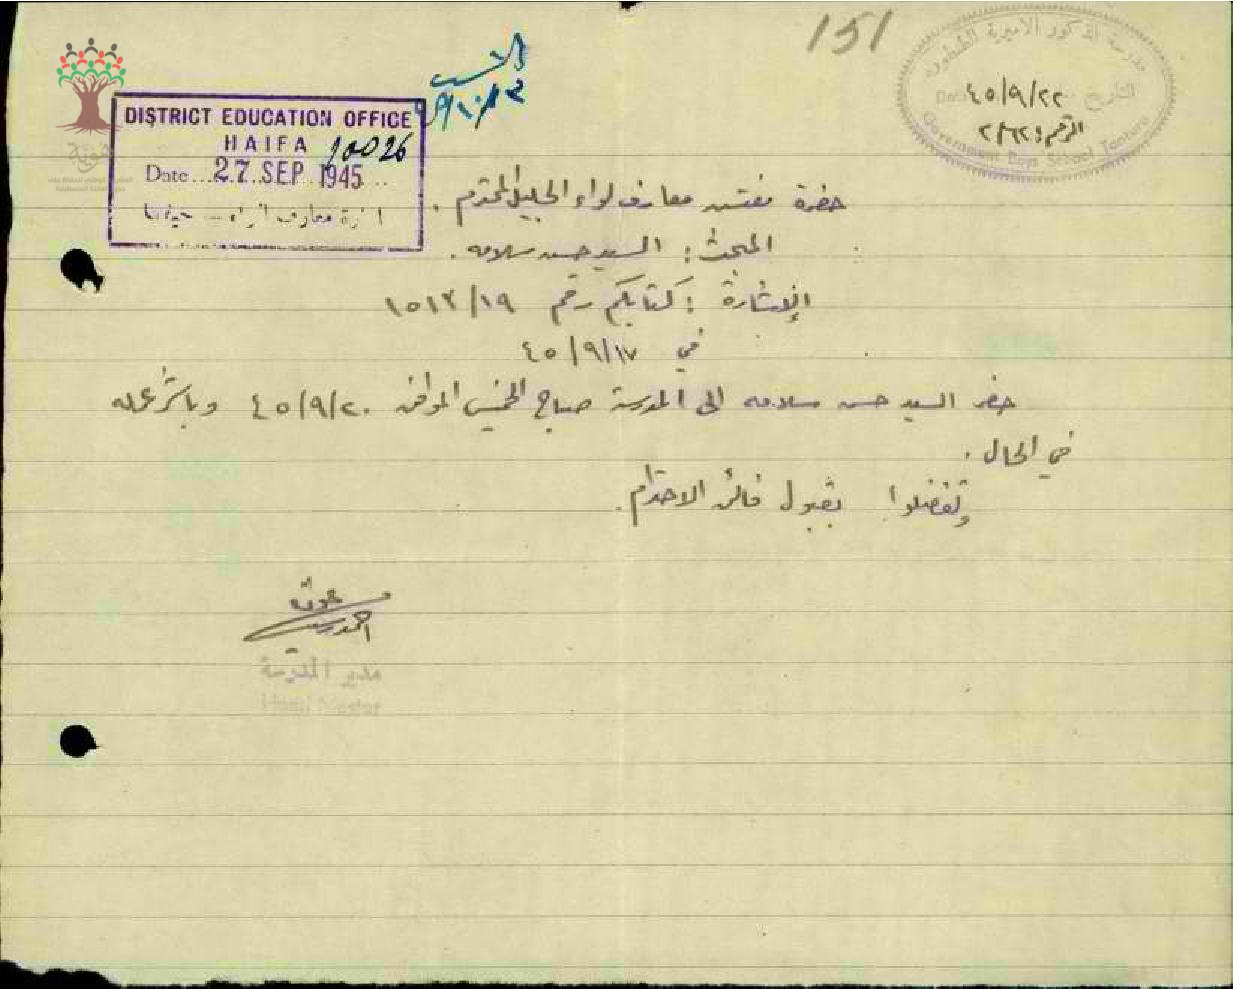 151
مدرسة الذكور الاميرية الطنطورة
التاريخ ٤٥/٩/٢٢ Date
الرقم:
Government Boys School Tantura
DISTRICT EDUCATION OFFICE
HAIFA 10026
Date 27 SEP 1945
حضرة مفتش معارف لواء الجليل المحترم .
المبحث : السيد حسن سلامه .
الإشارة : كتابكم رقم ١٥١٣/١٩
في ٤٥/٩/١٧
حضر السيد حسن سلامه الى المدرسة صباح الخميس الموافق ٤٥/٩/٢٠ وباشر عمله
في الحال .
وتفضلوا بقبول فائق الاحترام .
مدير المدرسة
Head Master